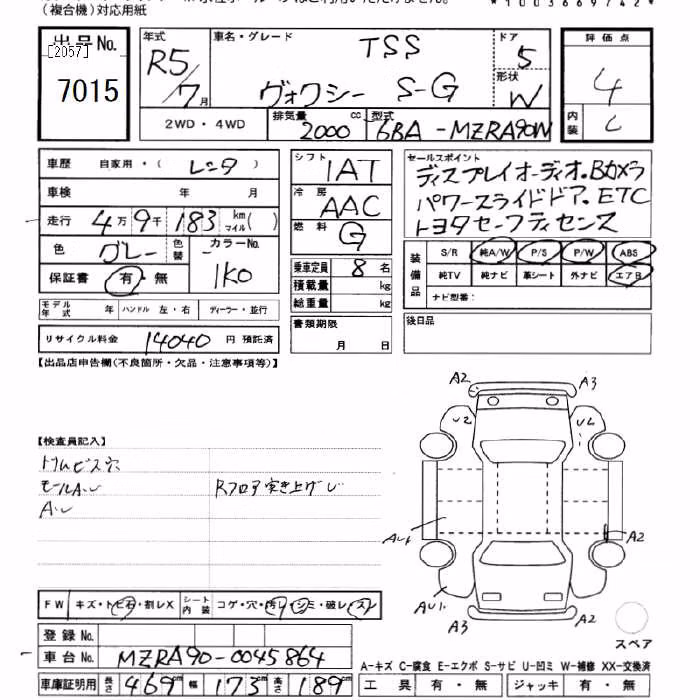 (複合機)対応用紙
*1003669742*
出品No.
[2057]
7015
年式 R5/7月
車名・グレード TSS
ヴォクシー S-G
ドア 5
形状 W
評価点 4
内装 C
2WD・4WD
排気量 2000 cc
型式 6BA-MZRA90W
車歴 自家用・( レンタ )
車検 年 月
走行 4万9千183 km マイル( )
色 グレー 色替 カラーNo. 1K0
保証書 有・無
モデル年式 ハンドル 左・右 ディーラー・並行
リサイクル料金 14040 円 預託済
シフト IAT
冷房 AAC
燃料 G
乗車定員 8名
積載量 kg
総重量 kg
書類期限
月 日
セールスポイント
ディスプレイオーディオ.Bカメラ
パワースライドドア.ETC
トヨタセーフティセンス
装備品 S/R 純A/W P/S P/W ABS
純TV 純ナビ 革シート 外ナビ エアB
ナビ型番:
後日品
【出品店申告欄(不良箇所・欠品・注意事項等)】
【検査員記入】
トリムビス穴
モールAU
Rフロア突き上げU
AU
A2 A3
U2 UL
A2
A3 A2
スペア
FW キズ・トビ石・割レX シート内装 コゲ・穴・汚レ・シミ・破レ・スレ
登録No.
車台No. MZRA90-0045864
車庫証明用 長さ 469cm 幅 173cm 高さ 189cm
A-キズ C-腐食 E-エクボ S-サビ U-凹ミ W-補修 XX-交換済
工具 有・無 ジャッキ 有・無